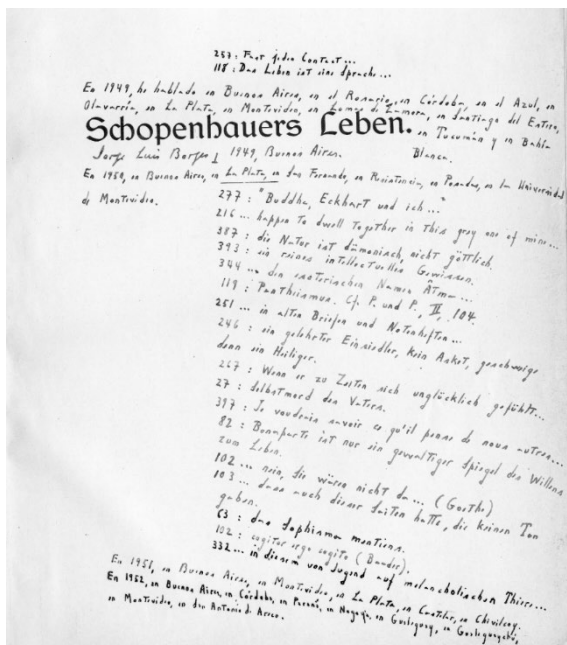 257: Fast jeden Contact...
118: Das Leben ist eine Sprache...
En 1949, he hablado en Buenos Aires, en el Rosario, en Córdoba, en el Azul, en
Olavarría, en La Plata, en Montevideo, en Lomas de Zamora, en Santiago del Estero,
Schopenhauers Leben.
en Tucumán y en Bahía
Blanca.
Jorge Luis Borges, 1949, Buenos Aires.
En 1950, en Buenos Aires, en La Plata, en San Fernando, en Resistencia, en Posadas, en la Universidad
de Montevideo.
277: "Buddha, Eckhart und ich..."
216... happen to dwell together in this grey one of mine...
387: die Natur ist dämonisch, nicht göttlich.
393: ein reines intellectuelles Gewissen.
344... den esoterischen Namen Ātma...
119: Pantheismus. Cf. P. und P., II, 104.
251... in alten Briefen und Notenheften...
246: ein gelehrter Einsiedler, kein Asket, geschweige
denn ein Heiliger.
267: Wenn er zu Zeiten sich unglücklich gefühlt...
27: Selbstmord des Vaters.
397: Je voudrais savoir ce qu'il pense de nous autres...
82: Bonaparte ist nur ein gewaltiger Spiegel des Willens
zum Leben.
102... nein, Sie wären nicht da... (Goethe)
103... dass auch dieser Saiten hatte, die keinen Ton
gaben.
63: das Sophisma mentiens.
102: cogitor ergo cogito (Baader).
332... in diesem von Jugend auf melancholischen Thiere...
En 1951, en Buenos Aires, en Montevideo, en La Plata, en Castelar, en Chivilcoy.
En 1952, en Buenos Aires, en Córdoba, en Paraná, en Nogoyá, en Gualeguay, en Gualeguaychú,
en Montevideo, en San Antonio de Areco.